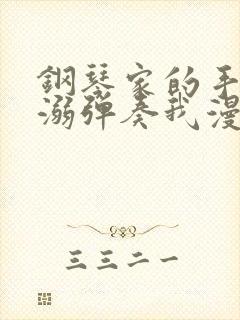 鋼琴家的手
溺彈奏我漫
三三二一